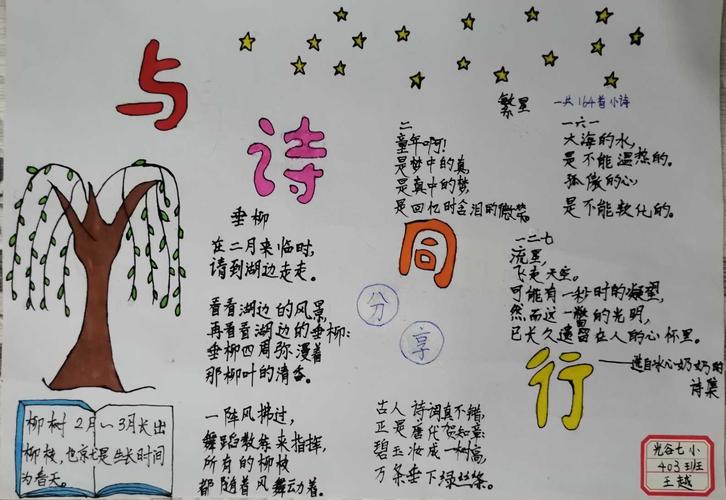 与诗同行
分享
垂柳
在二月来临时,
请到湖边走走。
看看湖边的风景,
再看看湖边的垂柳:
垂柳四周弥漫着
那柳叶的清香。
一阵风拂过,
舞蹈教练来指挥,
所有的柳枝
都随着风舞动着。
古人诗词真不错,
正是唐代贺知章:
碧玉妆成一树高,
万条垂下绿丝绦。
繁星
一共164首小诗
二
童年啊!
是梦中的真,
是真中的梦,
是回忆时含泪的微笑。
一六一
大海的水,
是不能温热的。
孤傲的心,
是不能软化的。
一二七
流星,
飞走天空。
可能有一秒时的凝望,
然而这一瞥的光明,
已长久遗留在人的心怀里。
——选自冰心奶奶的
诗集
柳树2月~3月长出
柳枝,也就是生长时间
为春天。
光谷七小
403班
王越